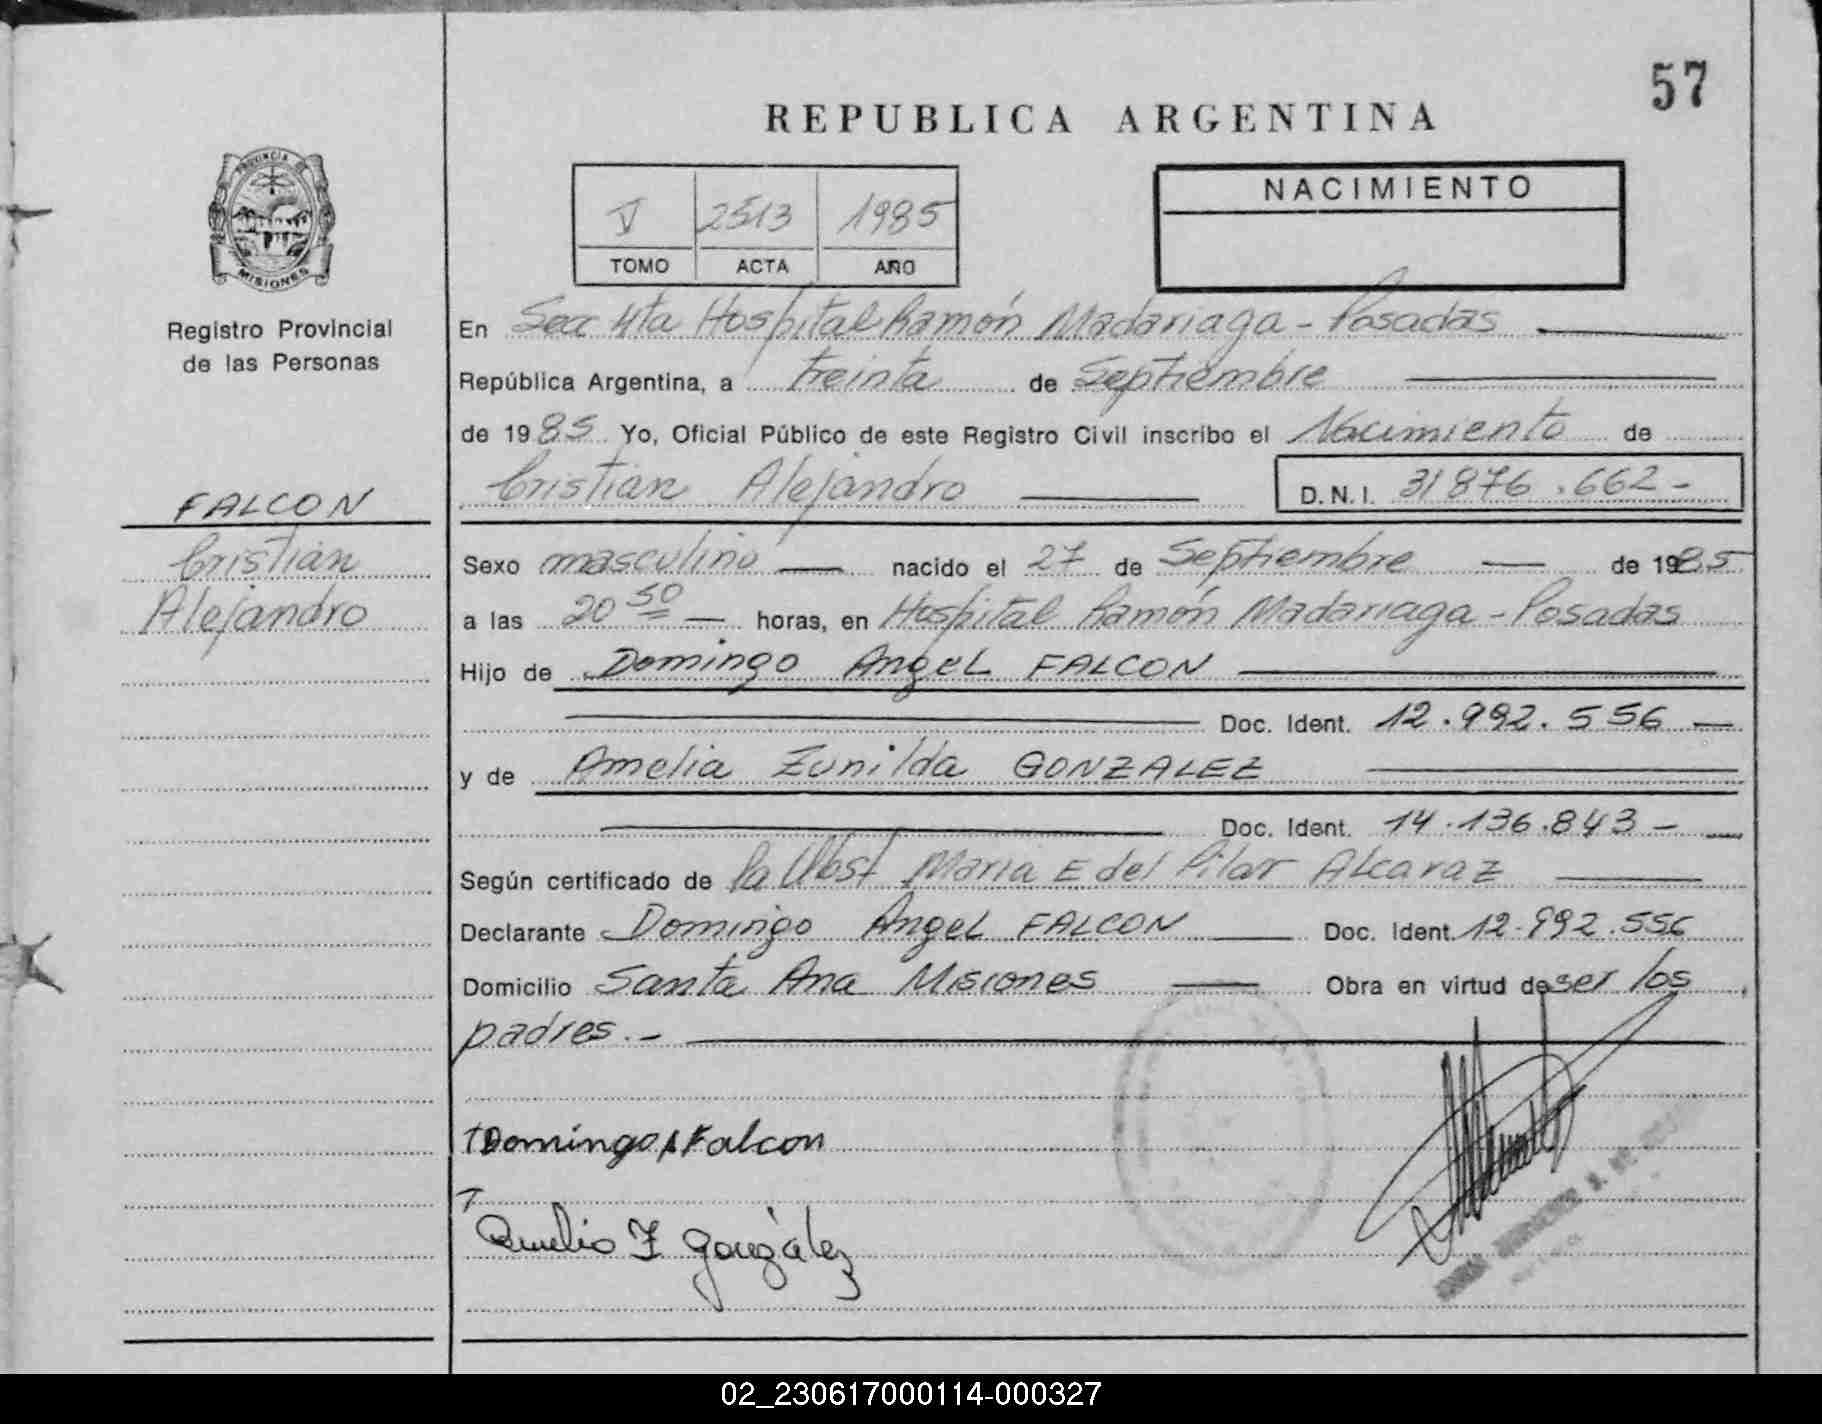 57
REPUBLICA ARGENTINA
PROVINCIA DE
MISIONES
Registro Provincial
de las Personas
V 2513 1985
TOMO ACTA AÑO
NACIMIENTO
En Secc 4ta Hospital Ramón Madariaga - Posadas
República Argentina, a treinta de Septiembre
de 1985 Yo, Oficial Público de este Registro Civil inscribo el Nacimiento de
Cristian Alejandro D.N.I. 31876.662-
FALCON
Cristian
Alejandro
Sexo masculino nacido el 27 de Septiembre de 1985
a las 20 50 horas, en Hospital Ramón Madariaga - Posadas
Hijo de Domingo Angel FALCON
Doc. Ident. 12.992.556
y de Amelia Zunilda GONZALEZ
Doc. Ident. 14.136.843-
Según certificado de la Obst Maria E del Pilar Alcaraz
Declarante Domingo Angel FALCON Doc. Ident. 12.992.556
Domicilio Santa Ana Misiones Obra en virtud de ser los
padres.-
Domingo A Falcon
Amelia Z González
02_230617000114-000327